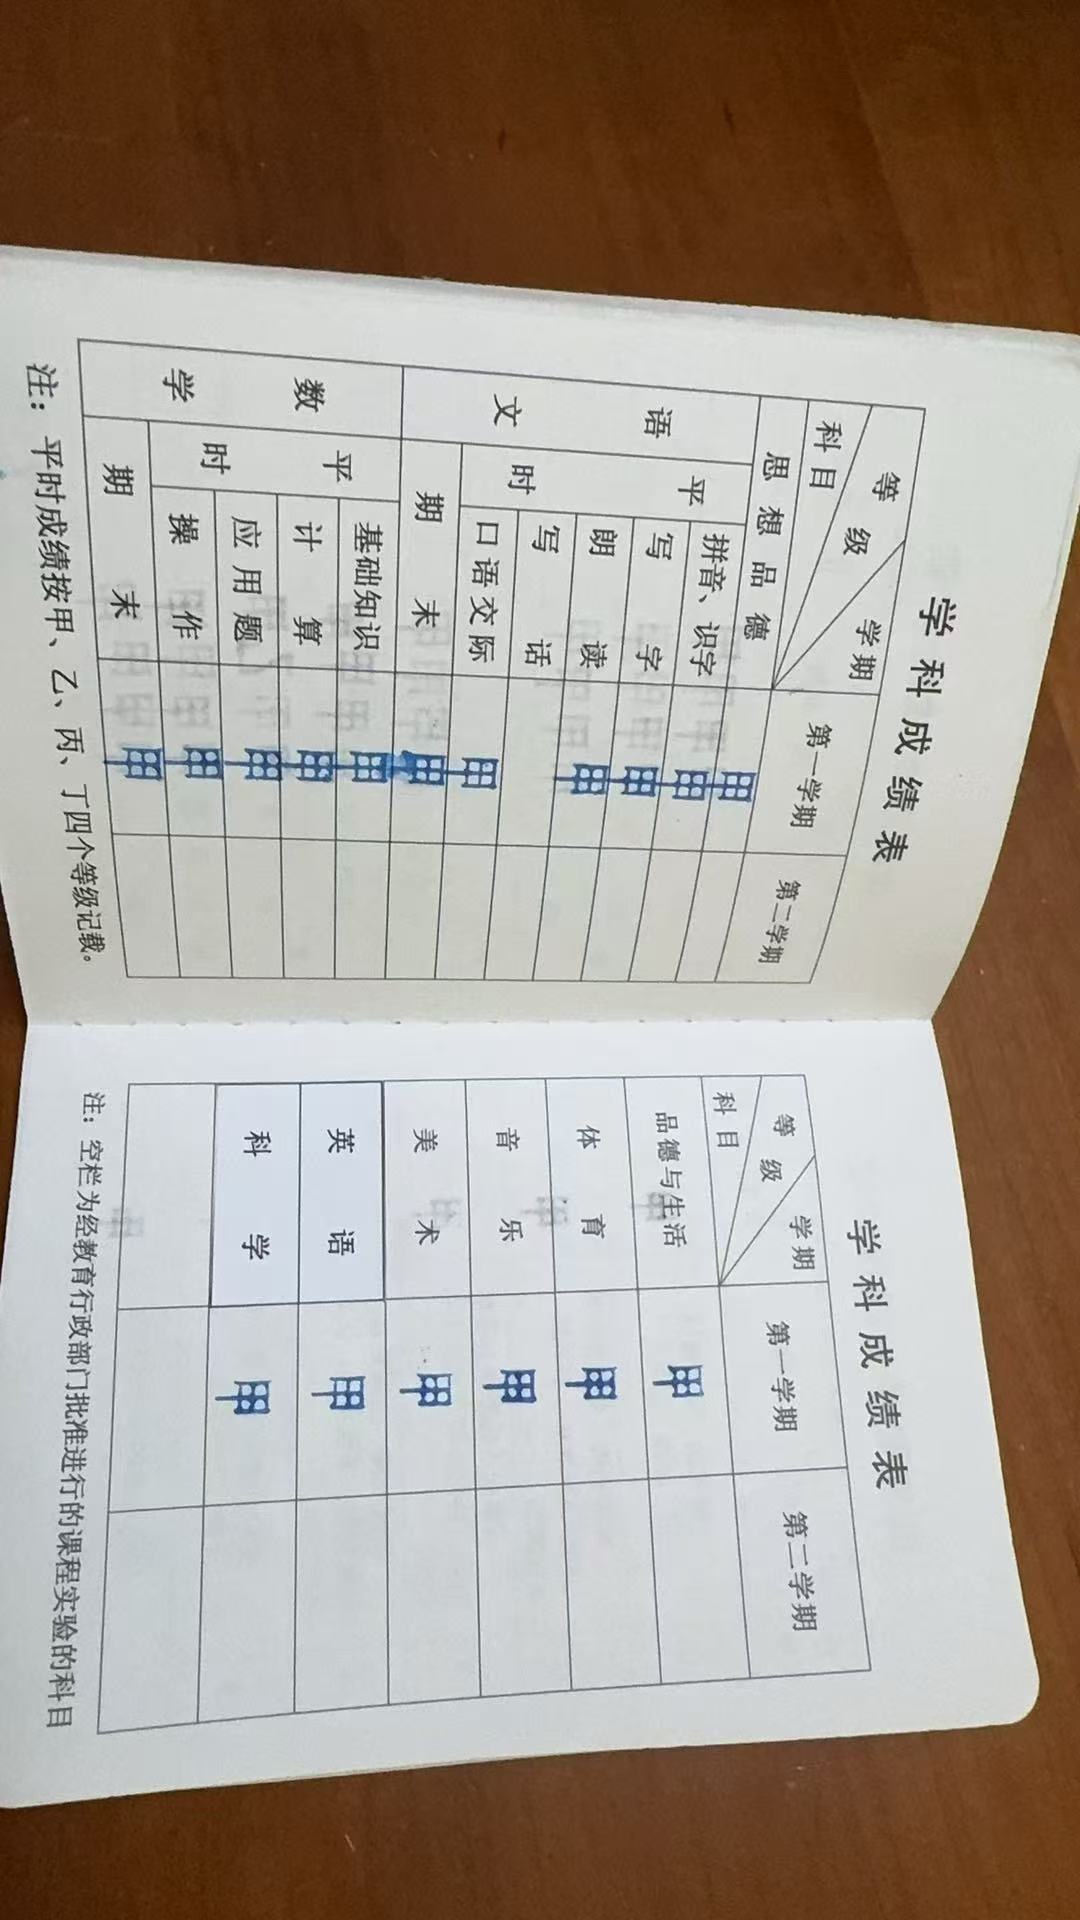 学科成绩表
等级 学期 科目 第一学期 第二学期
思想品德 甲
语文 平时 拼音、识字 甲
写字 甲
朗读 甲
写话
口语交际 甲
期末 甲
数学 平时 基础知识 甲
计算 甲
应用题 甲
操作 甲
期末 甲
注：平时成绩按甲、乙、丙、丁四个等级记载。
学科成绩表
等级 学期 科目 第一学期 第二学期
品德与生活 甲
体育 甲
音乐 甲
美术 甲
英语 甲
科学 甲
注：空栏为经教育行政部门批准进行的课程实验的科目